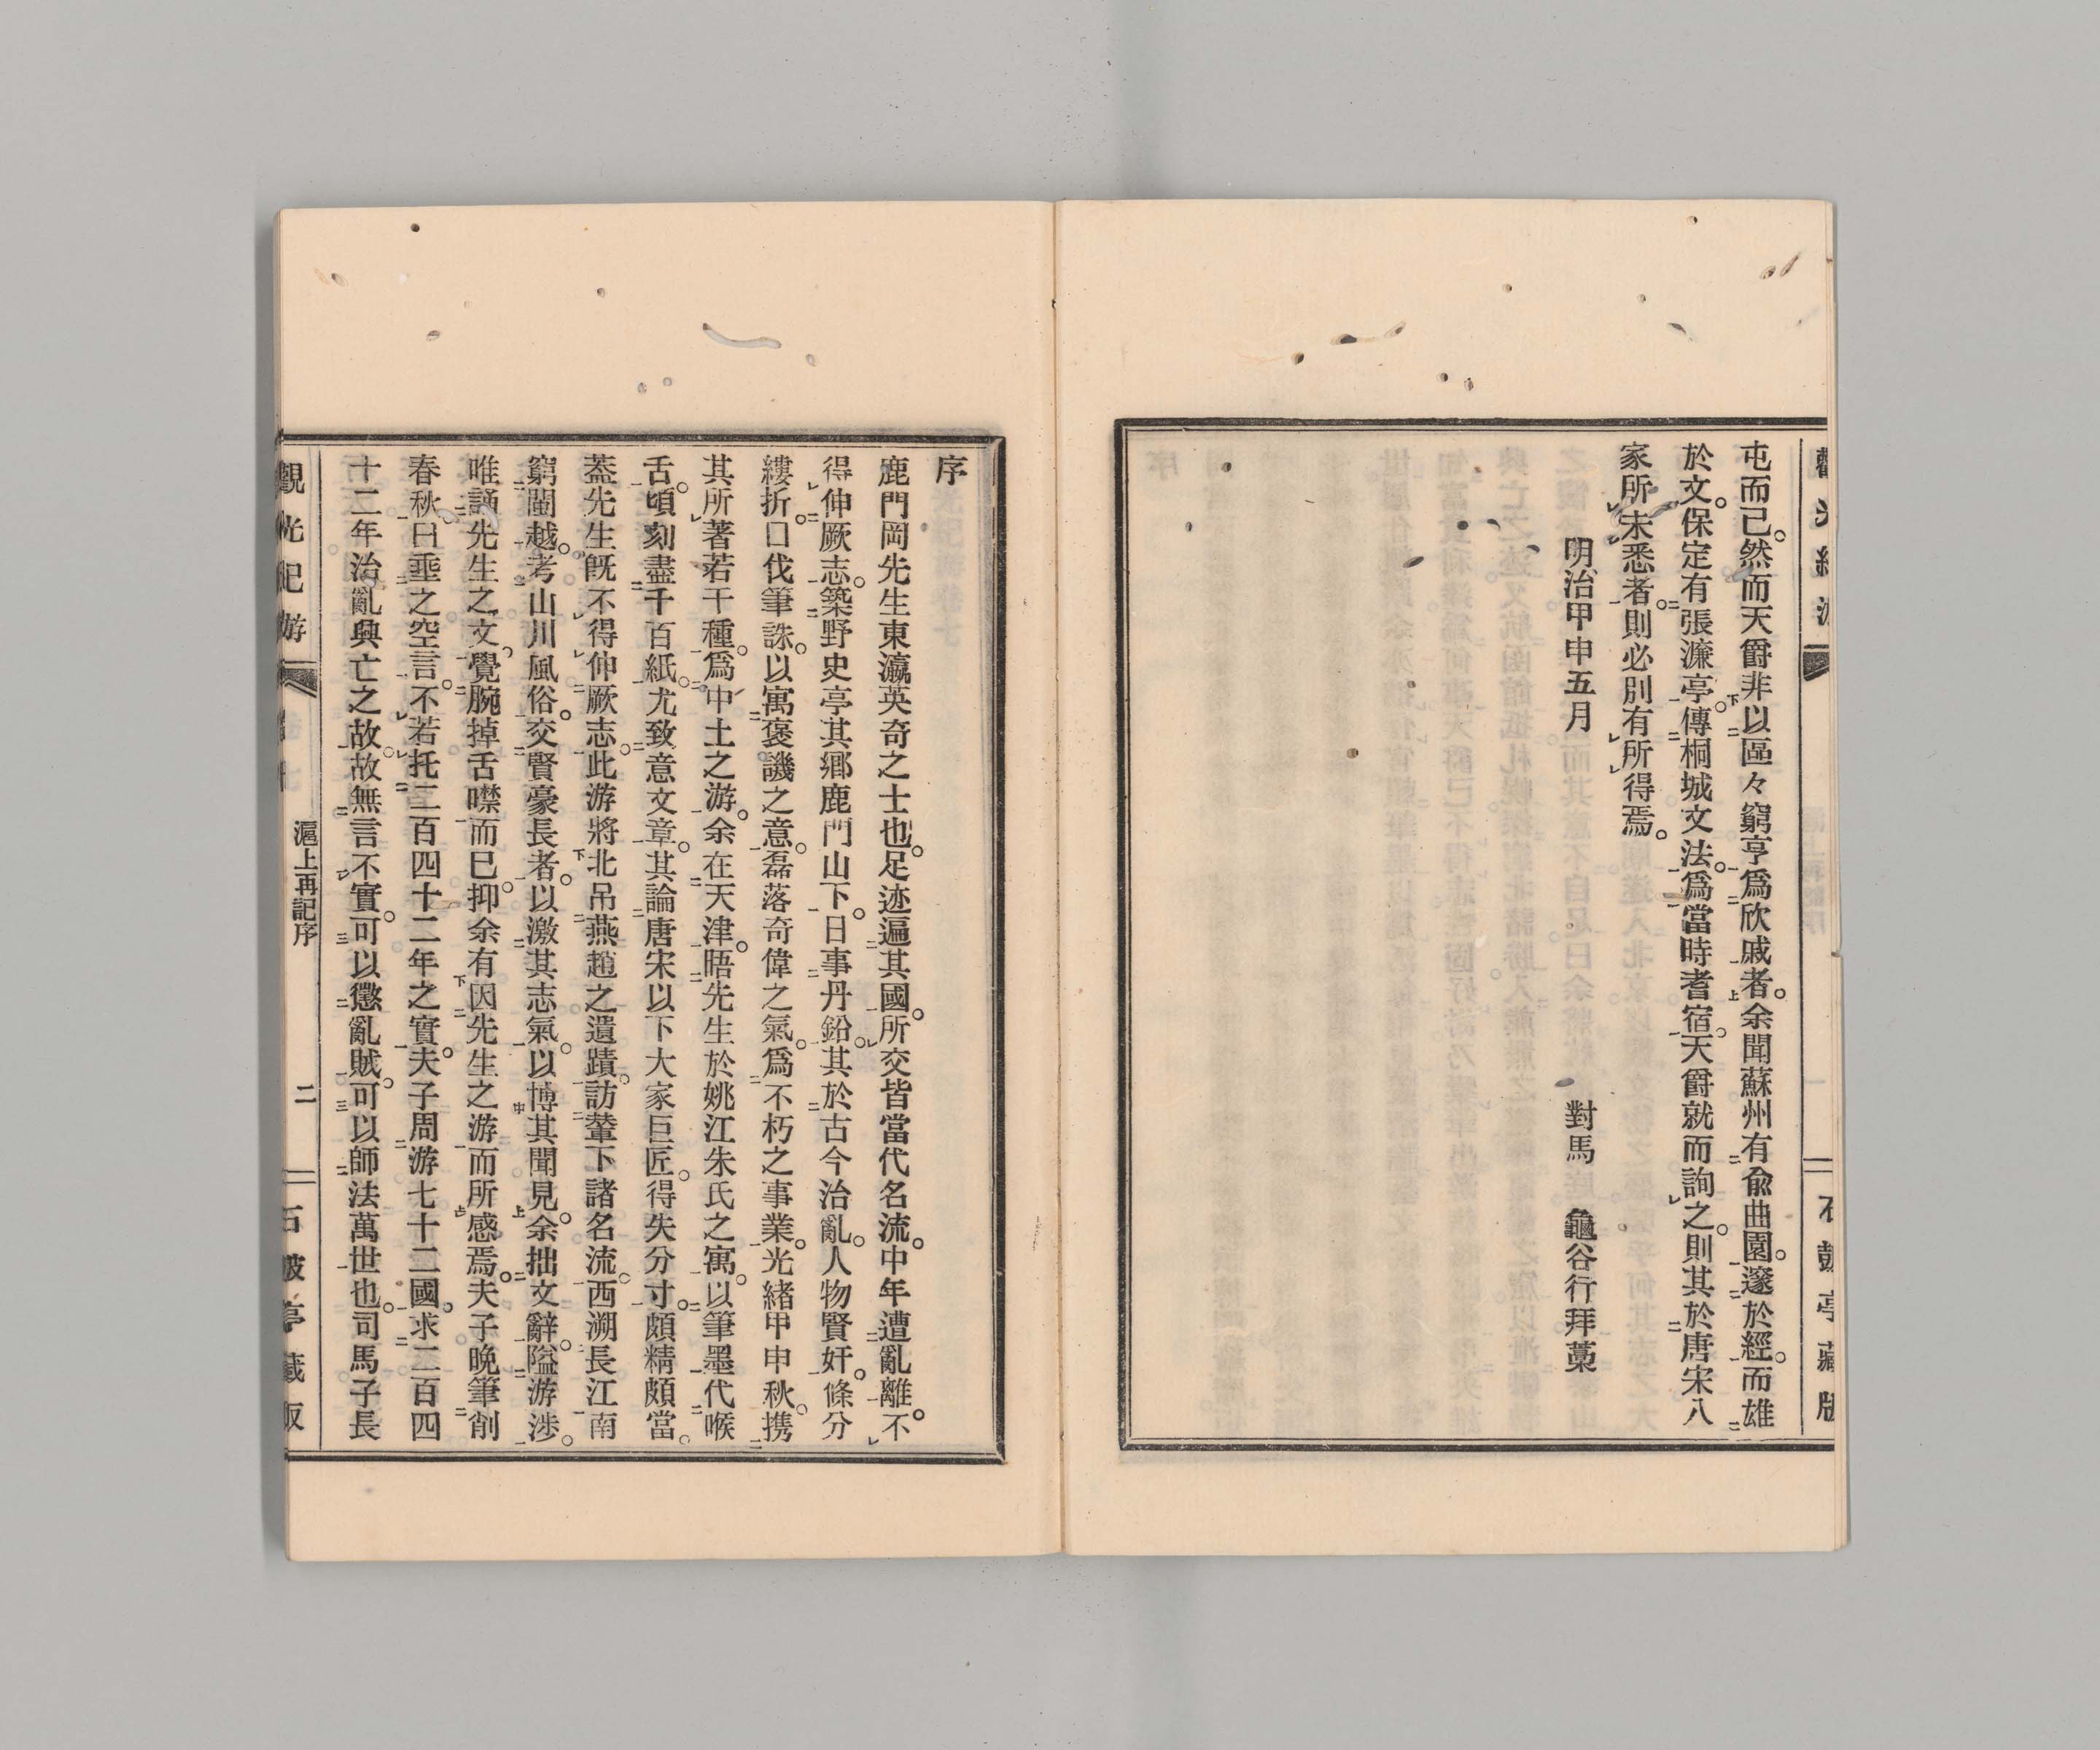 屯而已。然而天爵非以區々窮亨爲欣戚者。余聞蘇州有兪曲園。邃於經。而雄
於文。保定有張濂亭。傳桐城文法。爲當時耆宿。天爵就而詢之。則其於唐宋八
家所未悉者。則必別有所得焉。
明治甲申五月　對馬　龜谷行拜藁
序
鹿門岡先生東瀛英奇之士也。足迹遍其國。所交皆當代名流。中年遭亂離。不
得伸厥志。築野史亭其鄕鹿門山下。日事丹鉛。其於古今治亂。人物賢奸。條分
縷折。口伐筆誅。以寓褒譏之意。磊落奇偉之氣。爲不朽之事業。光緖甲申秋。携
其所著若干種。爲中土之游。余在天津。晤先生於姚江朱氏之寓。以筆墨代喉
舌。頃刻盡千百紙。尤致意文章。其論唐宋以下大家巨匠。得失分寸。頗精頗當。
蓋先生旣不得伸厥志。此游將北吊燕趙之遺蹟。訪輦下諸名流。西溯長江南
窮閩越。考山川風俗。交賢豪長者。以激其志氣。以博其聞見。余拙文辭。隘游涉。
唯誦先生之文。覺腕掉舌噤而已。抑余有因先生之游而所感焉。夫子晩筆削
春秋。曰埀之空言。不若托二百四十二年之實。夫子周游七十二國。求二百四
十二年治亂興亡之故。故無言不實。可以懲亂賊。可以師法萬世也。司馬子長
觀光紀游
滬上再記序
二
石皷亭藏版